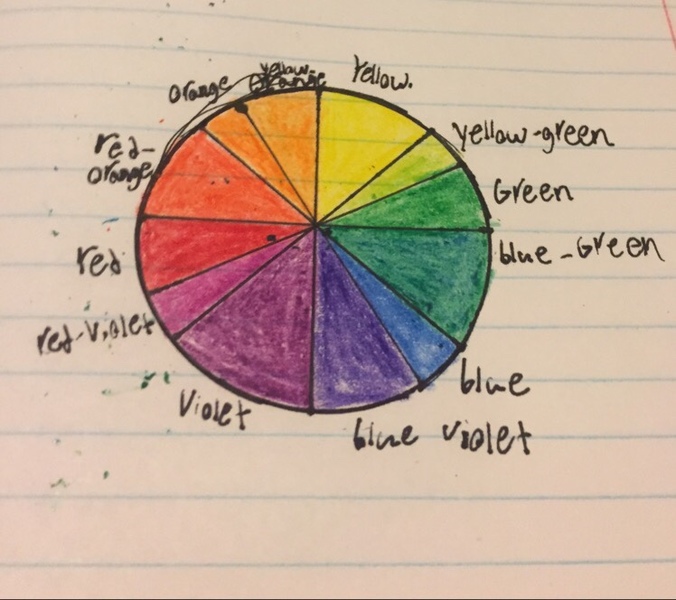 Yellow.
yellow-green
Green
blue-Green
blue
blue violet
Violet
red-violet
red
red-
orange
orange
yellow-
orange